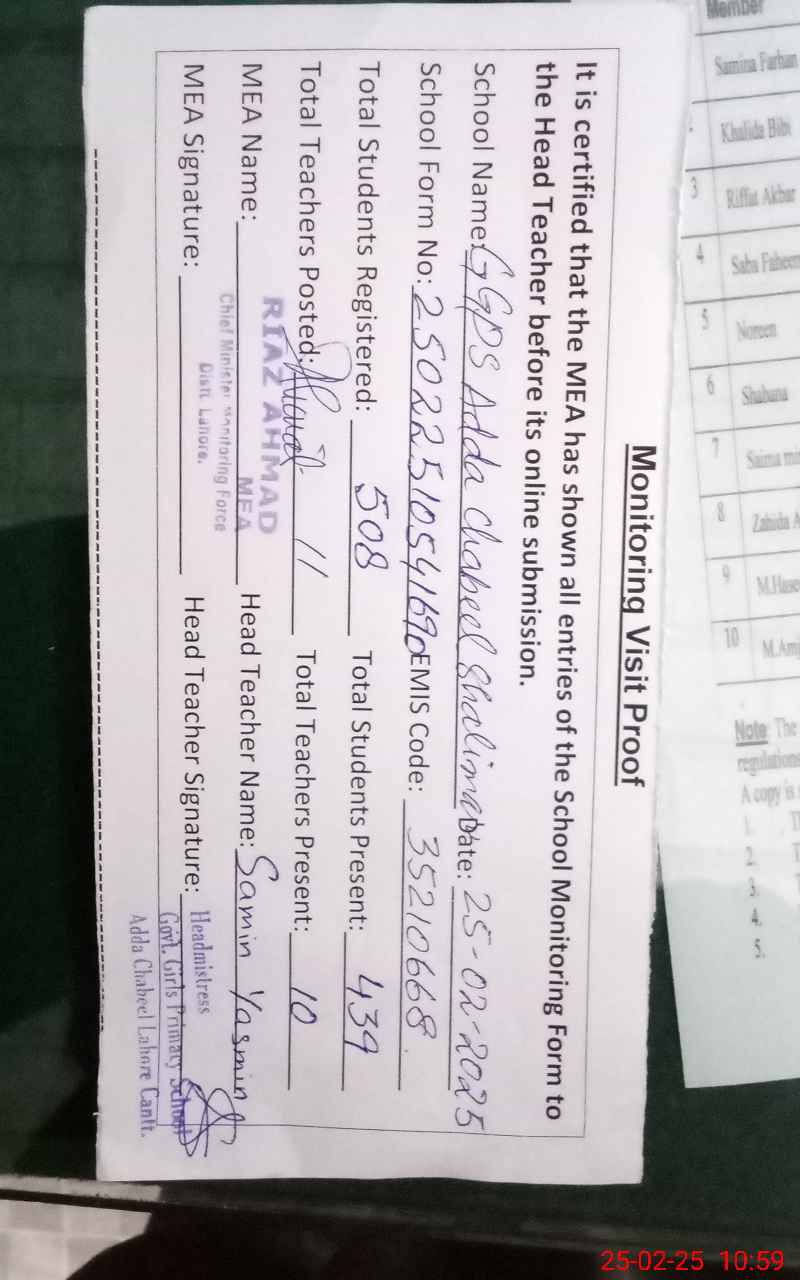 Monitoring Visit Proof
It is certified that the MEA has shown all entries of the School Monitoring Form to
the Head Teacher before its online submission.
School Name: GGPS Adda Chabeel Shalimar Date: 25-02-2025
School Form No: 25022510541690 EMIS Code: 35210668
Total Students Registered: 508 Total Students Present: 439
Total Teachers Posted: 11 Total Teachers Present: 10
MEA Name: RIAZ AHMAD Head Teacher Name: Samin Yasmin
MEA
MEA Signature: Head Teacher Signature:
Chief Minister Monitoring Force
Distt. Lahore.
Headmistress
Govt. Girls Primary School
Adda Chabeel Lahore Cantt.
Member
Samina Farhan
Khalida Bibi
3 Riffat Akbar
4 Saba Faheem
5 Noreen
6 Shabana
7 Saima
8 Zahida A
9 M.Hase
10 M.Am
Note: The
regulations
A copy is
1. T
2. T
3. T
4.
5.
25-02-25 10:59